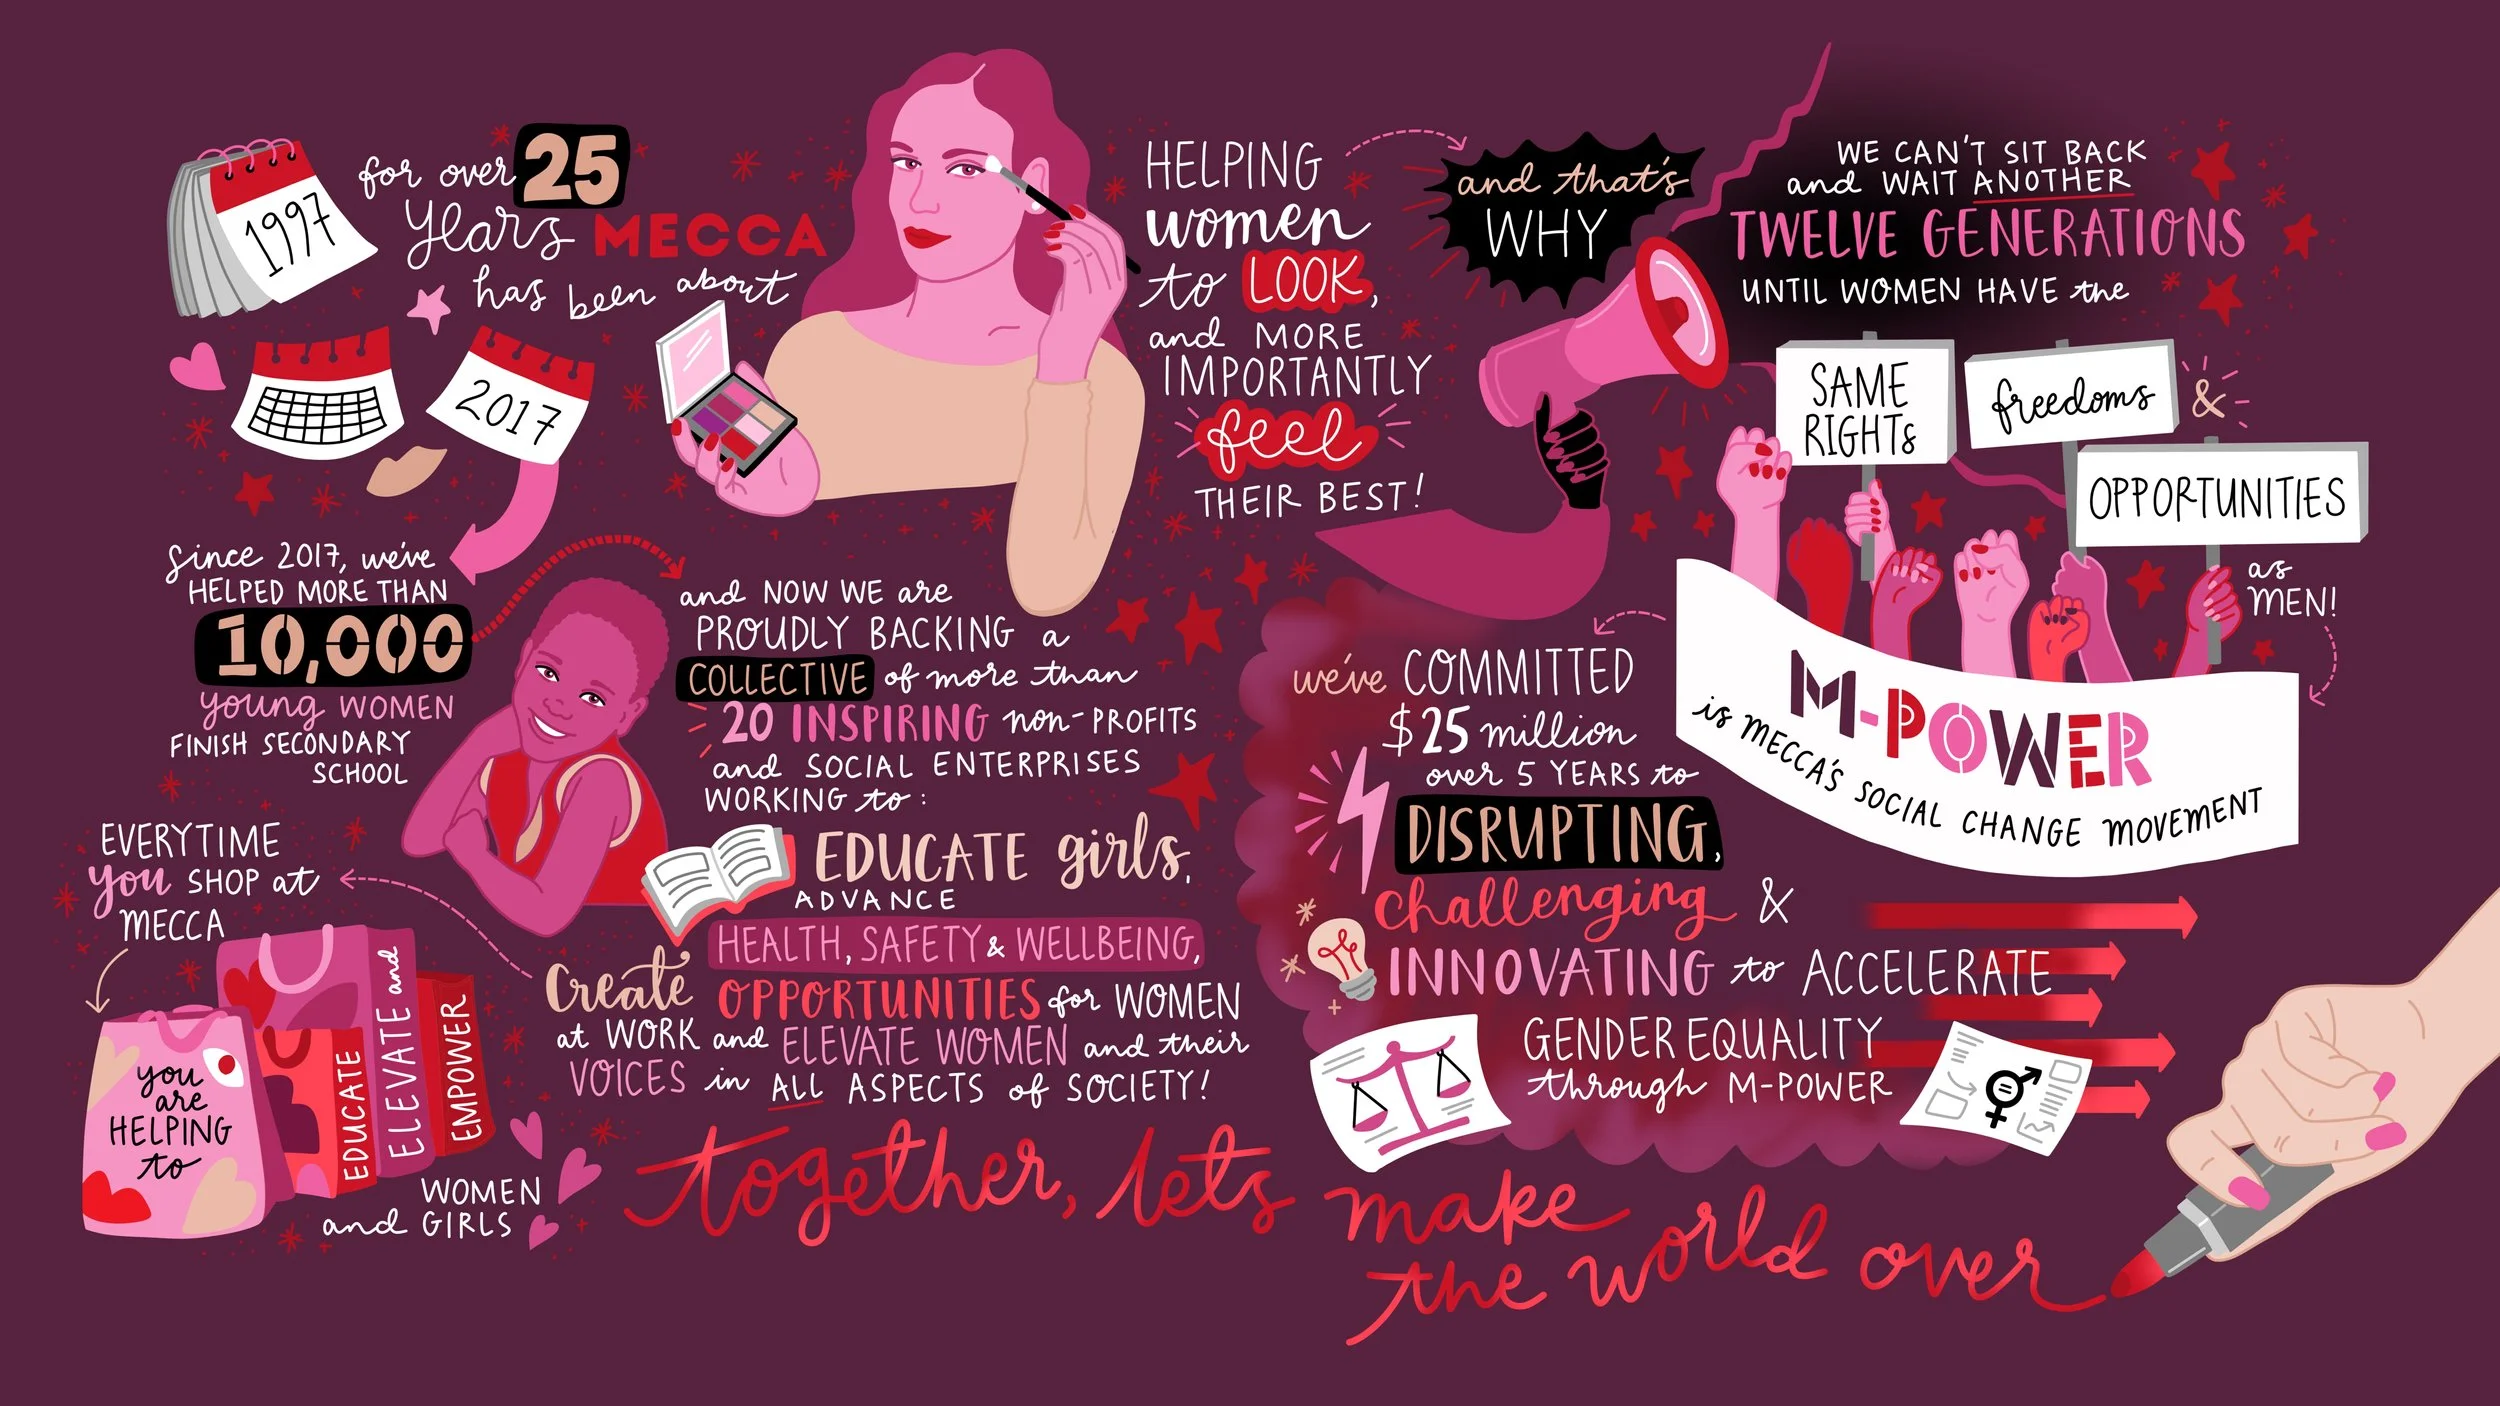 1997
for over 25
years MECCA
has been about
2017
HELPING
women
to LOOK,
and MORE
IMPORTANTLY
feel
THEIR BEST!
and that's
WHY
WE CAN'T SIT BACK
and WAIT ANOTHER
TWELVE GENERATIONS
UNTIL WOMEN HAVE the
SAME
RIGHTs
freedoms
&
OPPORTUNITIES
as
MEN!
M-POWER
is MECCA'S SOCIAL CHANGE MOVEMENT
we've COMMITTED
$25 million
over 5 YEARS to
DISRUPTING,
challenging &
INNOVATING to ACCELERATE
GENDER EQUALITY
through M-POWER
since 2017, we've
HELPED MORE THAN
10,000
young WOMEN
FINISH SECONDARY
SCHOOL
and NOW WE are
PROUDLY BACKING a
COLLECTIVE of more than
20 INSPIRING non-PROFITS
and SOCIAL ENTERPRISES
WORKING to:
EDUCATE girls,
ADVANCE
HEALTH, SAFETY & WELLBEING,
Create OPPORTUNITIES for WOMEN
at WORK and ELEVATE WOMEN and their
VOICES in ALL ASPECTS of SOCIETY!
EVERYTIME
you SHOP at
MECCA
you
are
HELPING
to
EDUCATE
ELEVATE and
EMPOWER
WOMEN
and GIRLS
together, lets make
the world over